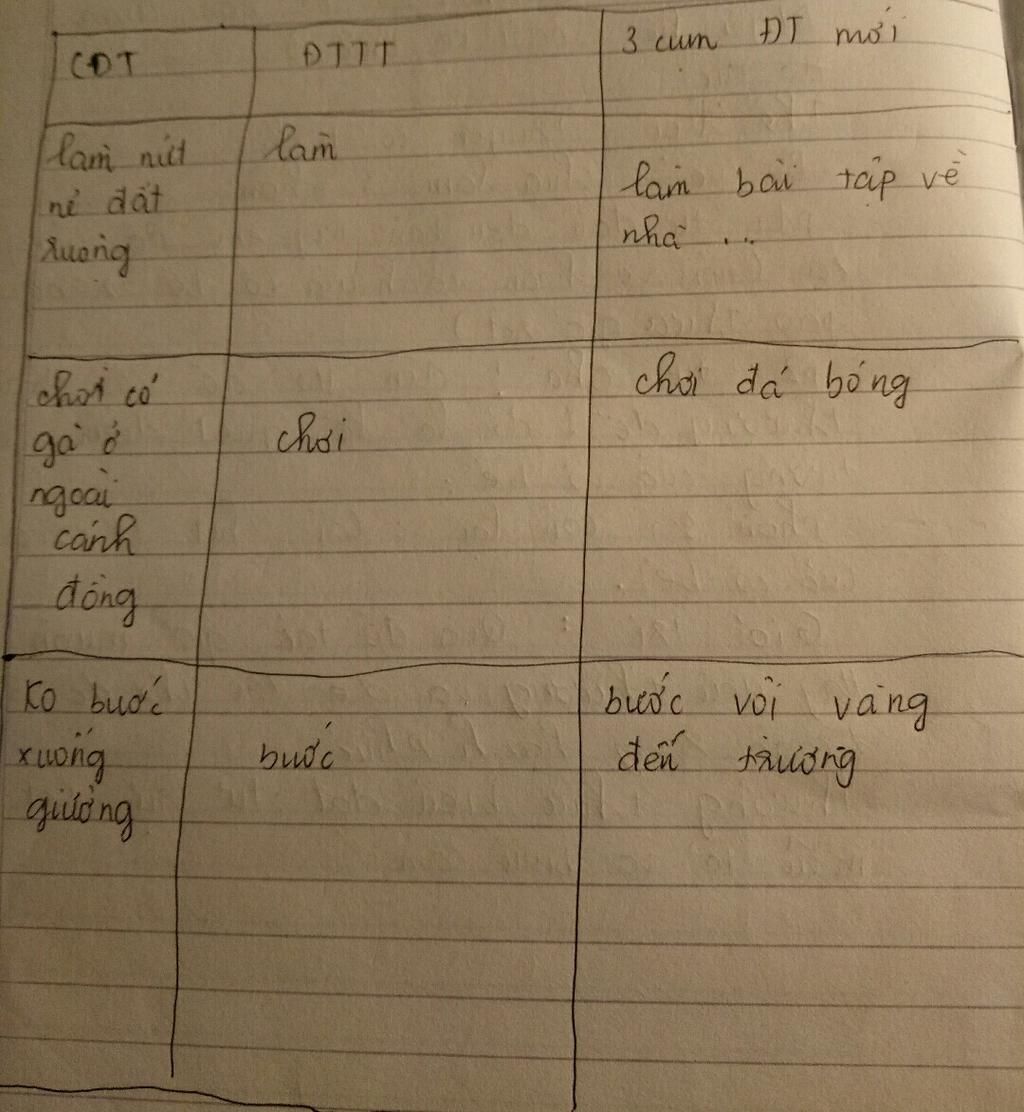 CĐT ĐTTT 3 cụm ĐT mới
làm nứt làm
nẻ đất làm bài tập về
ruộng nhà ...
chơi cỏ chơi đá bóng
gà ở chơi
ngoài
cánh
đồng
ko bước bước vội vàng
xuống bước đến trường
giường